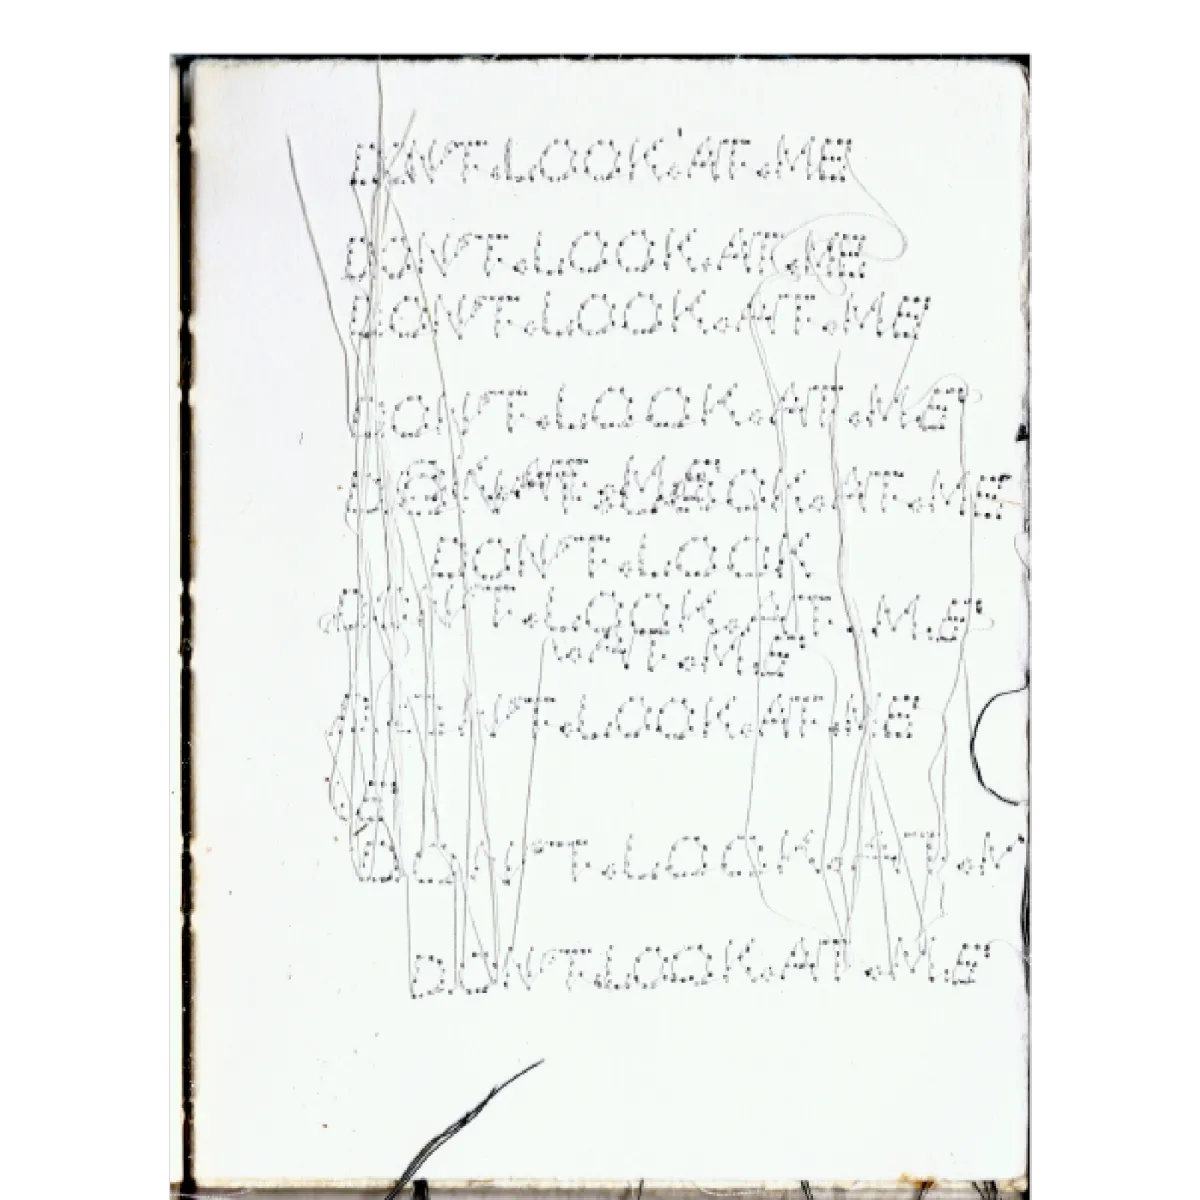 DON'T.LOOK.AT.ME
DON'T.LOOK.AT.ME
DON'T.LOOK.AT.ME
DON'T.LOOK.AT.ME
LOOK.AT.ME
DON'T.LOOK
DON'T.LOOK.AT.ME
.AT.ME
DON'T.LOOK.AT.ME
DON'T.LOOK.AT.M
DON'T.LOOK.AT.ME